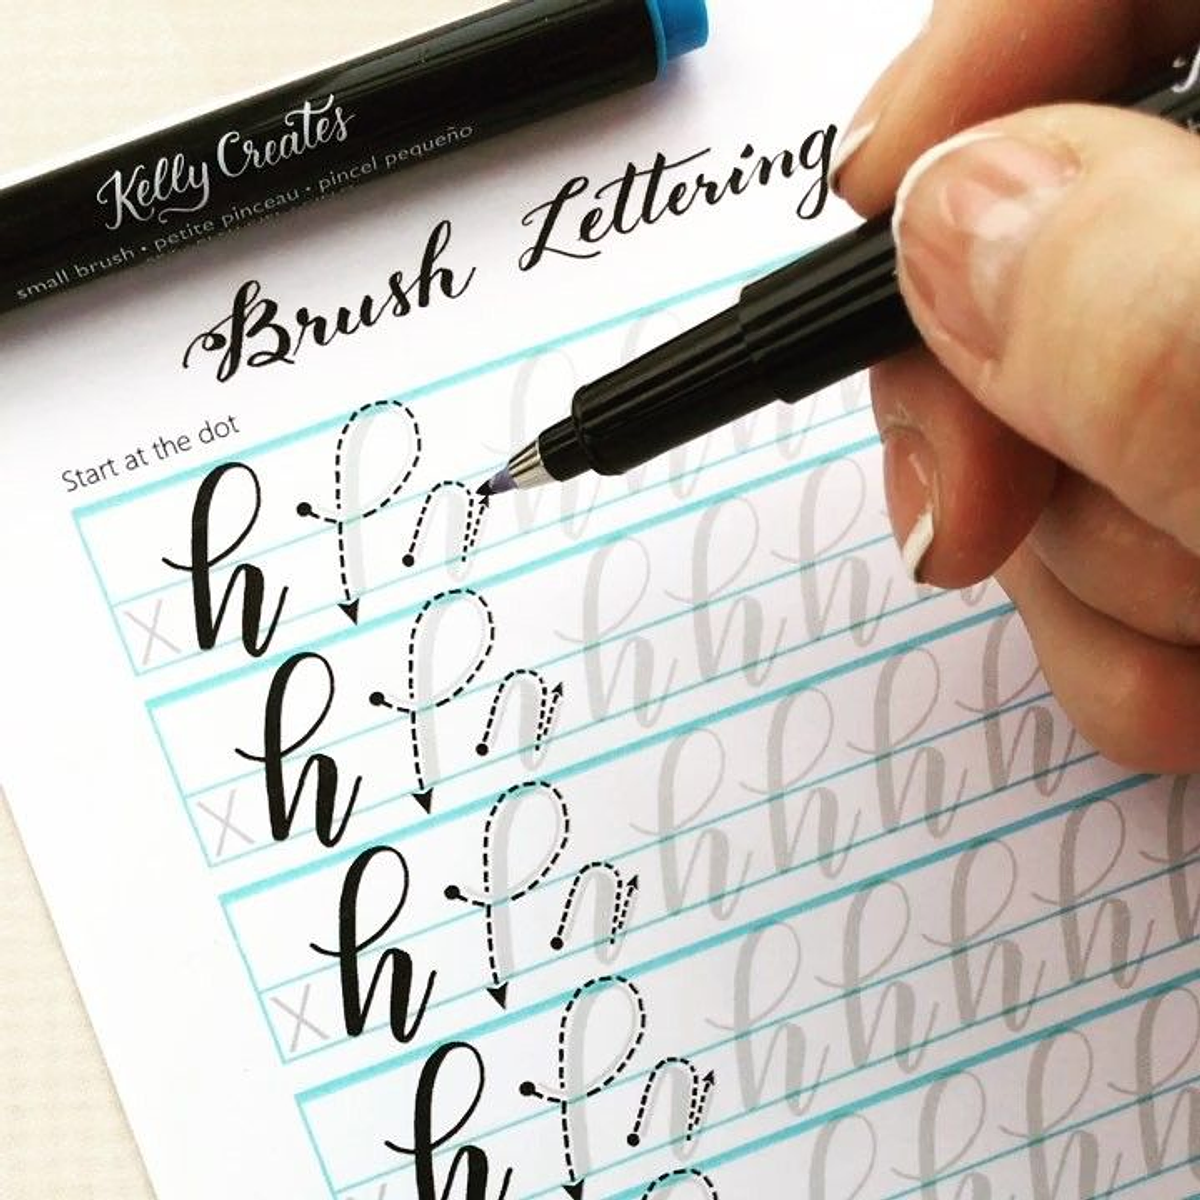 Kelly Creates
small brush • petite pinceau • pincel pequeño
Brush Lettering
Start at the dot
h h h h h h
x
h h h h h h
x
h h h h h h
x
h h h h h h
x